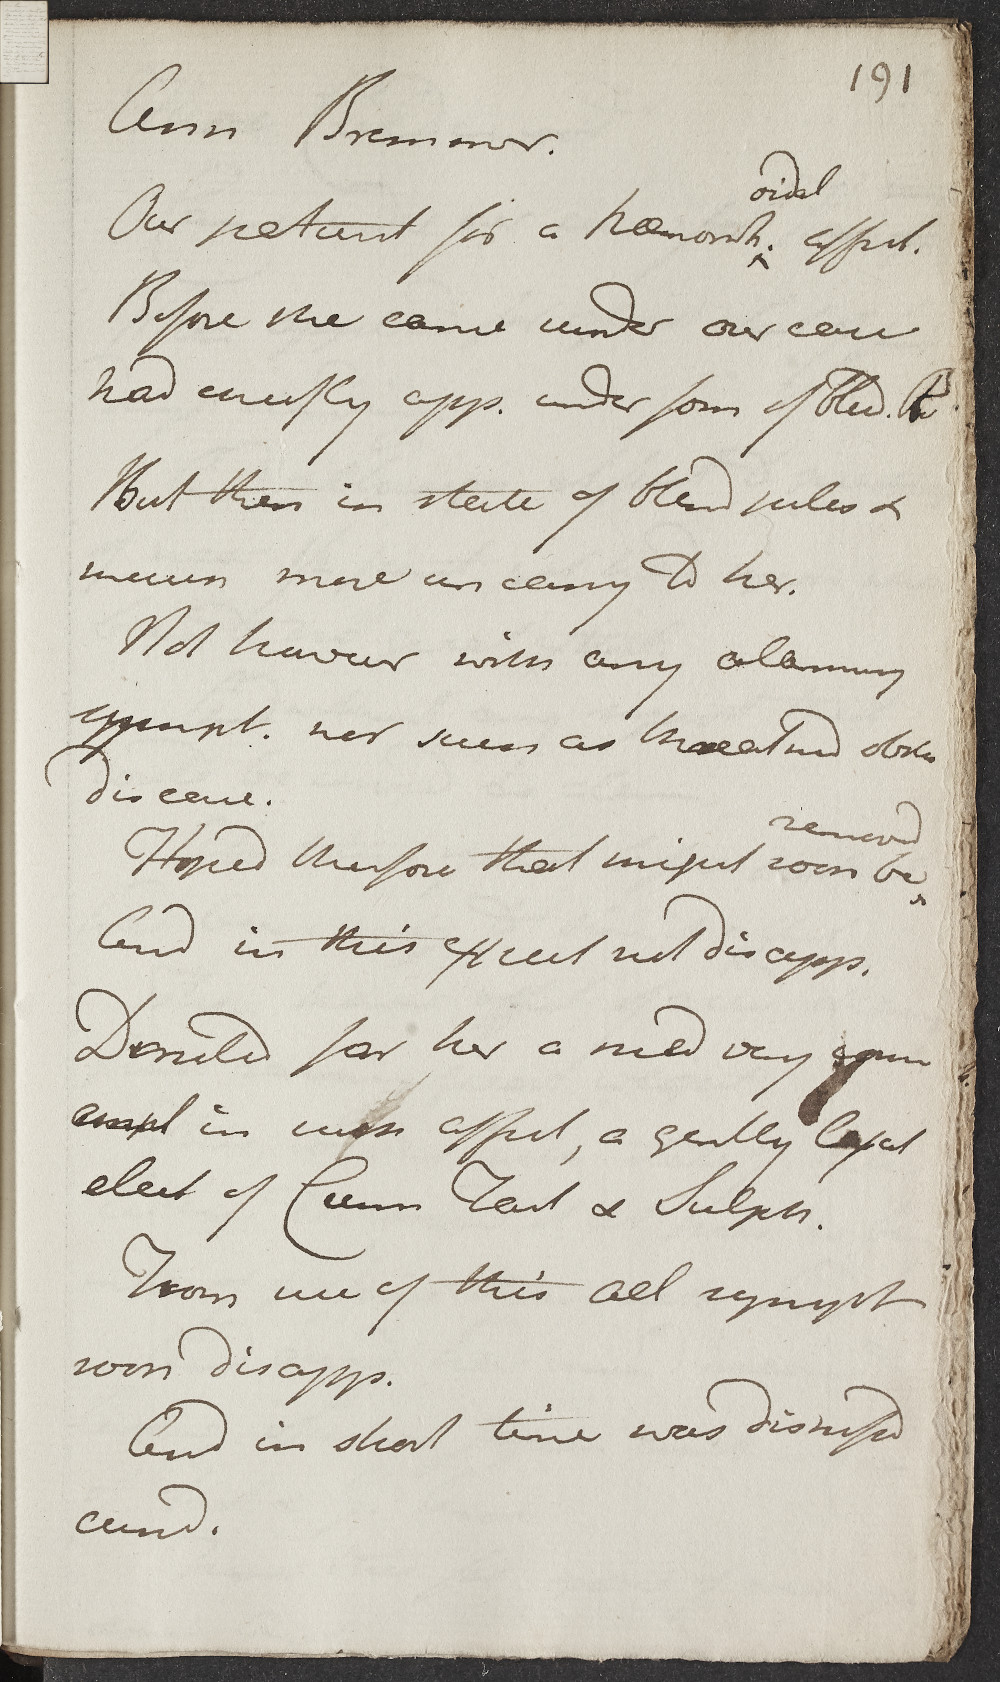 191
Ann Bremner.
Our patient for a hæmorrh.oidal affect.
Before she came under our care
had chiefly app. under form of bleed.
But then in state of blind piles &
means more uneasy to her.
Not however with any alarming
sympt. nor such as threatned obsti
disease.
Hoped therefore that might soon be removed
And in this expect not disapp.
Directed for her a med very comm
empl in such affect, a gently laxat
elect of Crem Tart & Sulph.
From use of this all sympt
soon disapp.
And in short time was dismissd
cured.